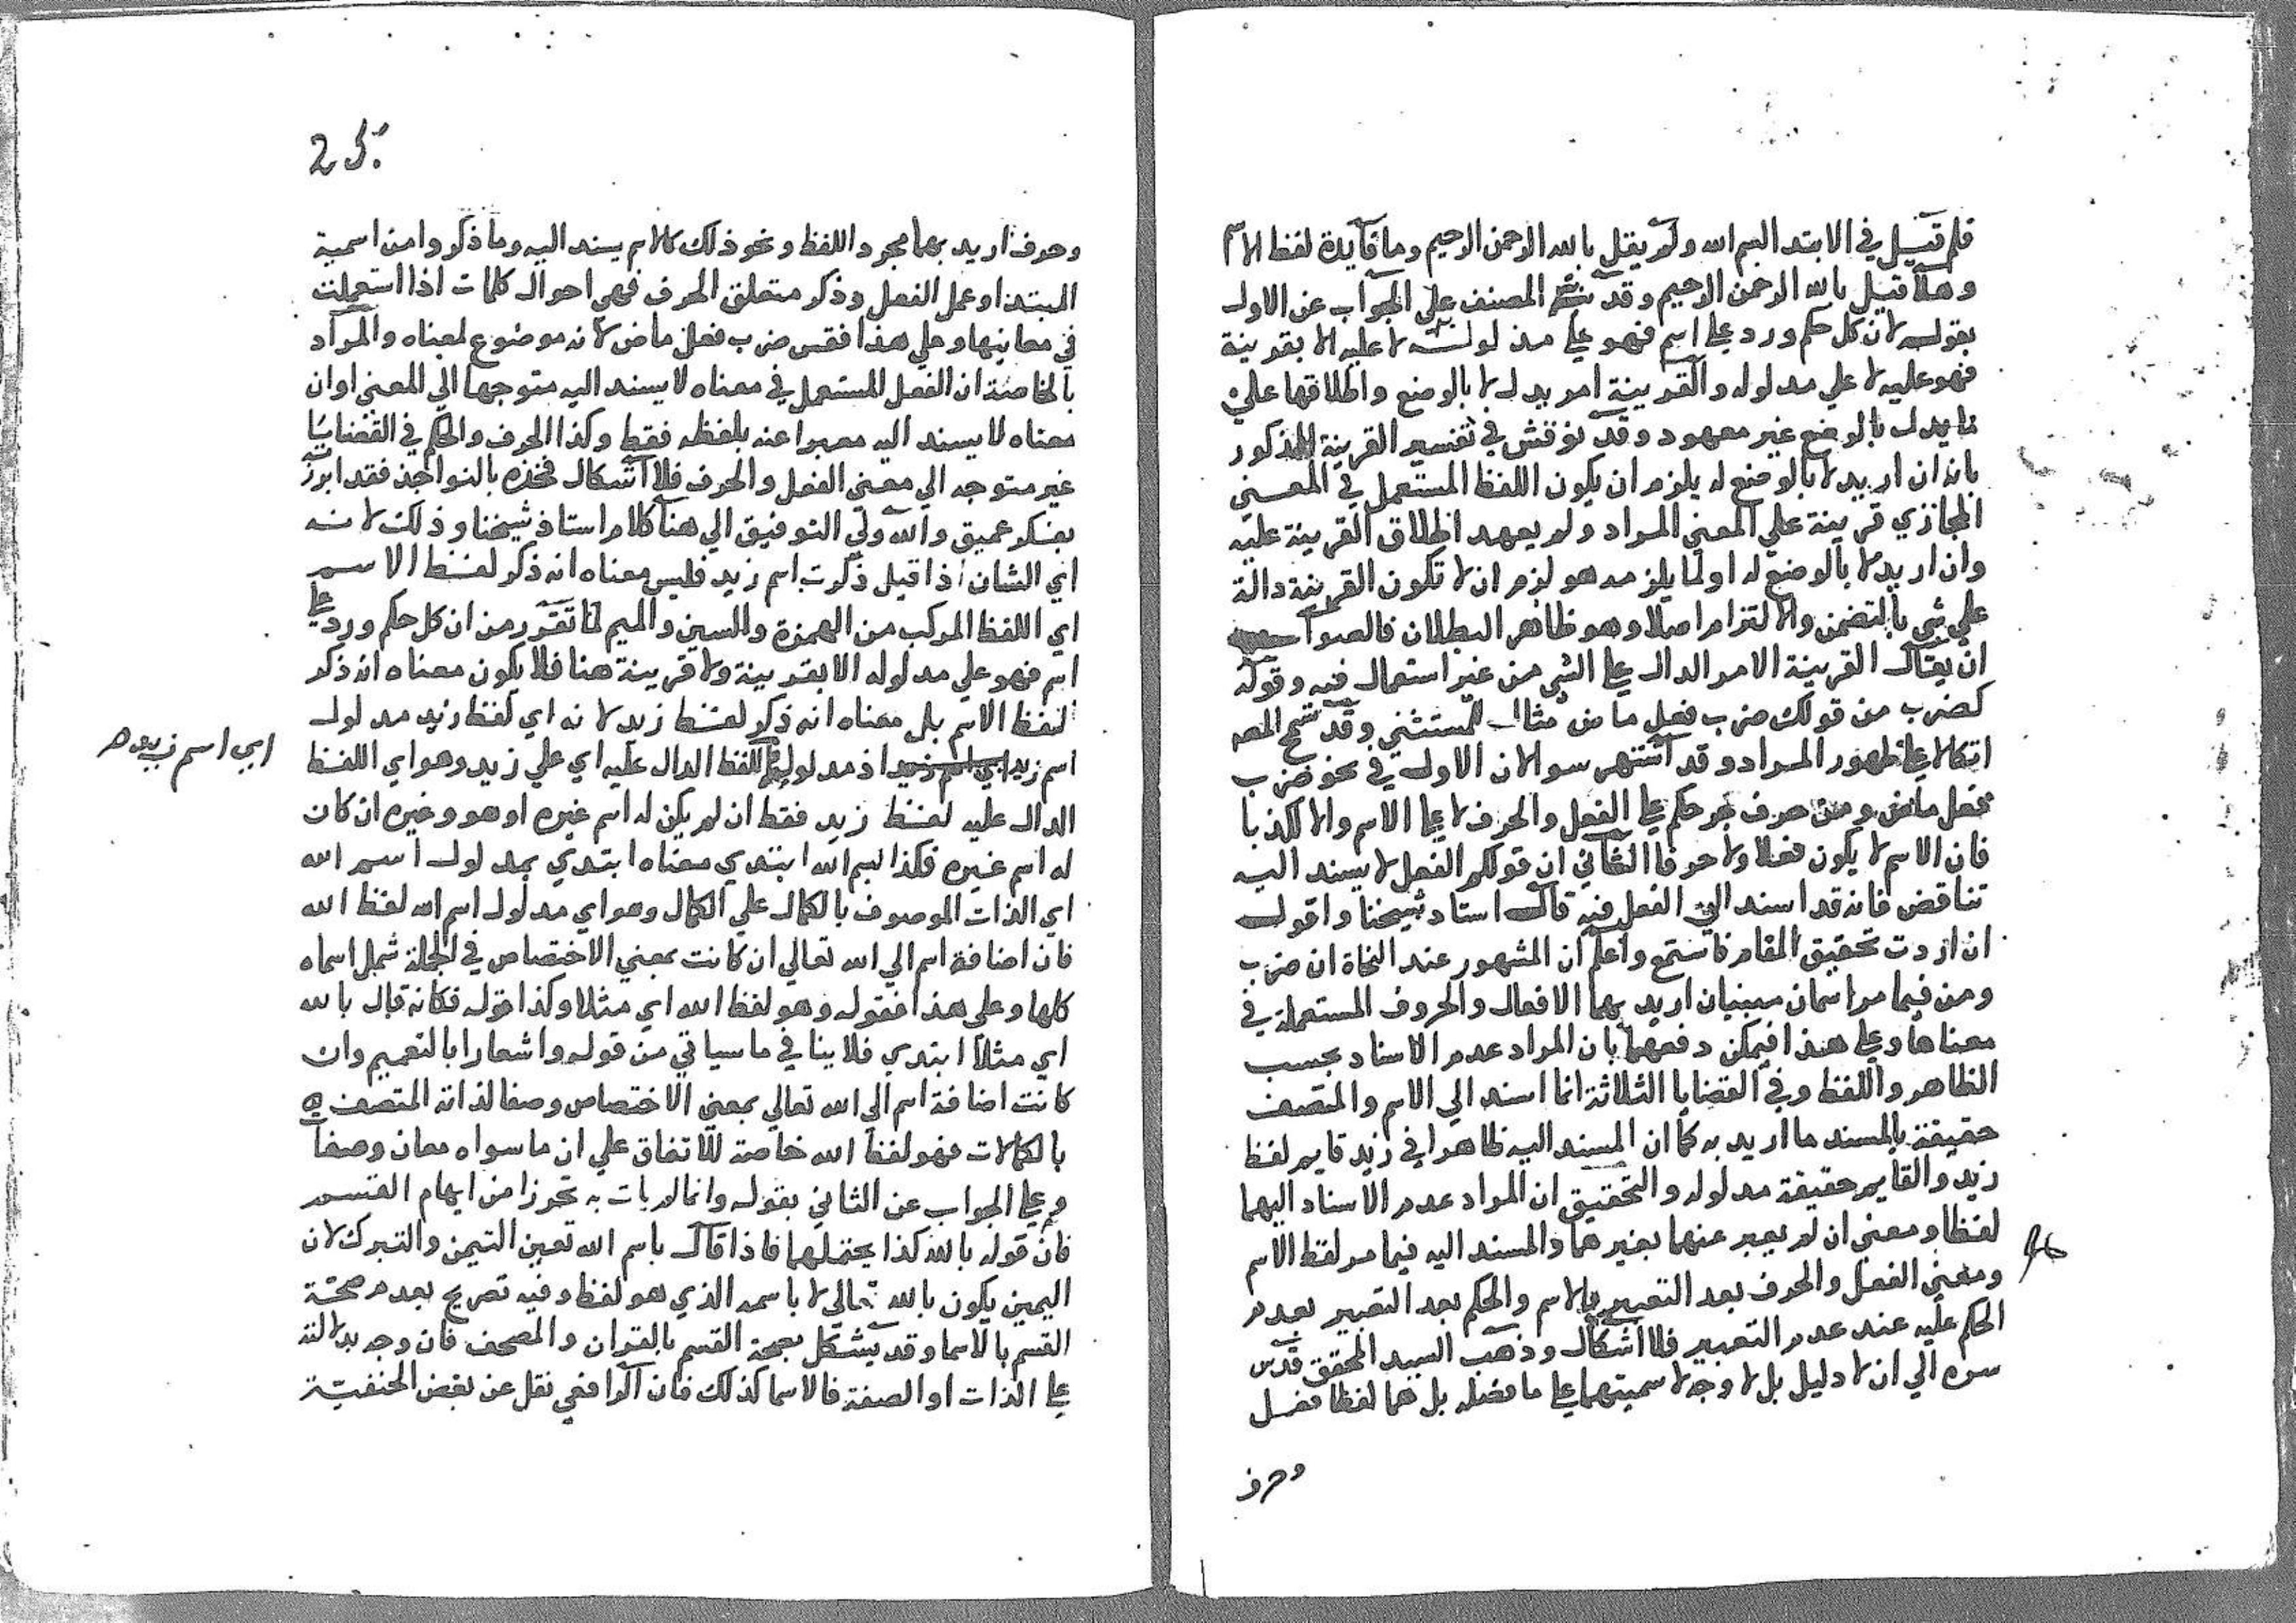 فلم قيل في الابتدا بسم الله ولم يقل بالله الرحمن الرحيم وما فايدة لفظ الاسم
وهلا قيل بالله الرحمن الرحيم وقد المصنف علي الجواب عن الاول
بقوله لان كل حكم ورد علي اسم فهو علي مدلوله لا عليه الا بقرينة
فهو عليه لا علي مدلوله والقرينة امر يدل لا بالوضع واطلاقها علي
ما يدل بالوضع غير معهود وقد نوقش في تفسير القرينة المذكور
بانه ان اريد لا بالوضع له يلزم ان يكون اللفظ المستعمل في المعني
المجازي قرينة علي المعني المراد ولم يعهد اطلاق القرينة عليه
وان اريد لا بالوضع له اولما يلزمه هو لزم ان لا تكون القرينة دالة
علي شي بالتضمن والالتزام اصلا وهو ظاهر البطلان فالصواب
ان يقال القرينة الامر الدال علي الشي من غير استعمال فيه وقوله
كضرب من قولك ضرب فعل ماض مثال للمستثني وقد تسمح المص
اتكالا علي ظهور المراد وقد اشتهر سوالان الاول في نحو ضرب
فعل ماض ومن حرف جر حكم علي الفعل والحرف لا علي الاسم والا لكذبا
فان الاسم لا يكون فعلا ولا حرفا الثاني ان قولكم الفعل لا يسند اليه
تناقض فانه قد اسند الي الفعل فيه قال استاد شيخنا واقول
ان اردت تحقيق المقام فاستمع واعلم ان المشهور عند النحاة ان ضرب
ومن فيما مر اسمان مبنيان اريد بهما الافعال والحروف المستعملة في
معناها وعلي هذا فيمكن دفعهما بان المراد عدم الاسناد بحسب
الظاهر واللفظ وفي القضايا الثلاثة انما اسند الي الاسم والمتصف
حقيقة بالمسند ما اريد به كما ان المسند اليه ظاهرا في زيد قايم لفظ
زيد والقايم حقيقة مدلوله والتحقيق ان المراد عدم الاسناد اليهما
لفظا ومعني ان لم يعبر عنهما بغيرهما والمسند اليه فيما مر لفظ الاسم
ومعني الفعل والحرف بعد التعبير بالاسم والحكم بعد التعبير بعدم
الحكم عليه عند عدم التعبير فلا اشكال وذهب السيد المحقق قدس
سره الي ان لا دليل بل لا وجه لاسميتهما علي ما فضله بل هما لفظا فعل
وحرف
25
وحرف اريد بهما مجرد اللفظ ونحو ذلك كالاسم يسند اليه وما ذكروا من اسمية
المبتدا وعمل الفعل وذكر متعلق الحرف فهي احوال كلمات اذا استعملت
في معانيها وعلي هذا فقس ضرب فعل ماض لانه موضوع لمعناه والمراد
بالخاصة ان الفعل المستعمل في معناه لا يسند اليه متوجها الي المعني اوان
معناه لا يسند اليه معبرا عنه بلفظه فقط وكذا الحرف والحكم في القضايا
غير متوجه الي معني الفعل والحرف فلا اشكال فخذه بالنواجذ فقد ابرزته
بفكر عميق والله ولي التوفيق الي هنا كلام استاذ شيخنا وذلك لانه
اي الشان اذا قيل ذكرت اسم زيد فليس معناه انه ذكر لفظ الاسم
اي اللفظ المركب من الهمزة والسين والميم لما تقرر من ان كل حكم ورد علي
اسم فهو علي مدلوله الا بقرينة ولا قرينة هنا فلا يكون معناه انه ذكر
لفظ الاسم بل معناه انه ذكر لفظ زيد لانه اي لفظ زيد مدلول
اسم زيد اي اسم زيد اذ مدلوله اللفظ الدال عليه اي علي زيد وهو اي اللفظ
اي اسم زيد
الدال عليه لفظ زيد فقط ان لم يكن له اسم غيره او هو وغيره ان كان
له اسم غيره فكذا بسم الله ابتدي معناه ابتدي بمدلول اسم الله
اي الذات الموصوف بالكمال علي الكمال وهو اي مدلول اسم الله لفظ الله
فان اضافة اسم الي الله تعالي ان كانت بمعني الاختصاص في الجملة شمل اسماه
كلها وعلي هذا فقوله وهو لفظ الله اي مثلا وكذا قوله فكانه قال بالله
اي مثلا ابتدي فلا ينافي ما سياتي من قوله واشعارا بالتعميم وان
كانت اضافة اسم الي الله تعالي بمعني الاختصاص وصفا لذاته المتصف
بالكمالات فهو لفظ الله خاصة للاتفاق علي ان ما سواه معان وصفات
وعلي الجواب عن الثاني بقوله وانما لم يات به تحرزا من ايهام القسم
فان قوله بالله كذا يحتملهما فاذا قال باسم الله تعين التيمن والتبرك لان
اليمين يكون بالله تعالي لا باسمه الذي هو لفظ وفيه تصريح بعدم صحة
القسم بالاسما وقد يشكل بصحة القسم بالقران والمصحف فان وجه بدلالته
علي الذات او الصفة فالاسما كذلك فان الرافعي نقل عن بعض الحنفية